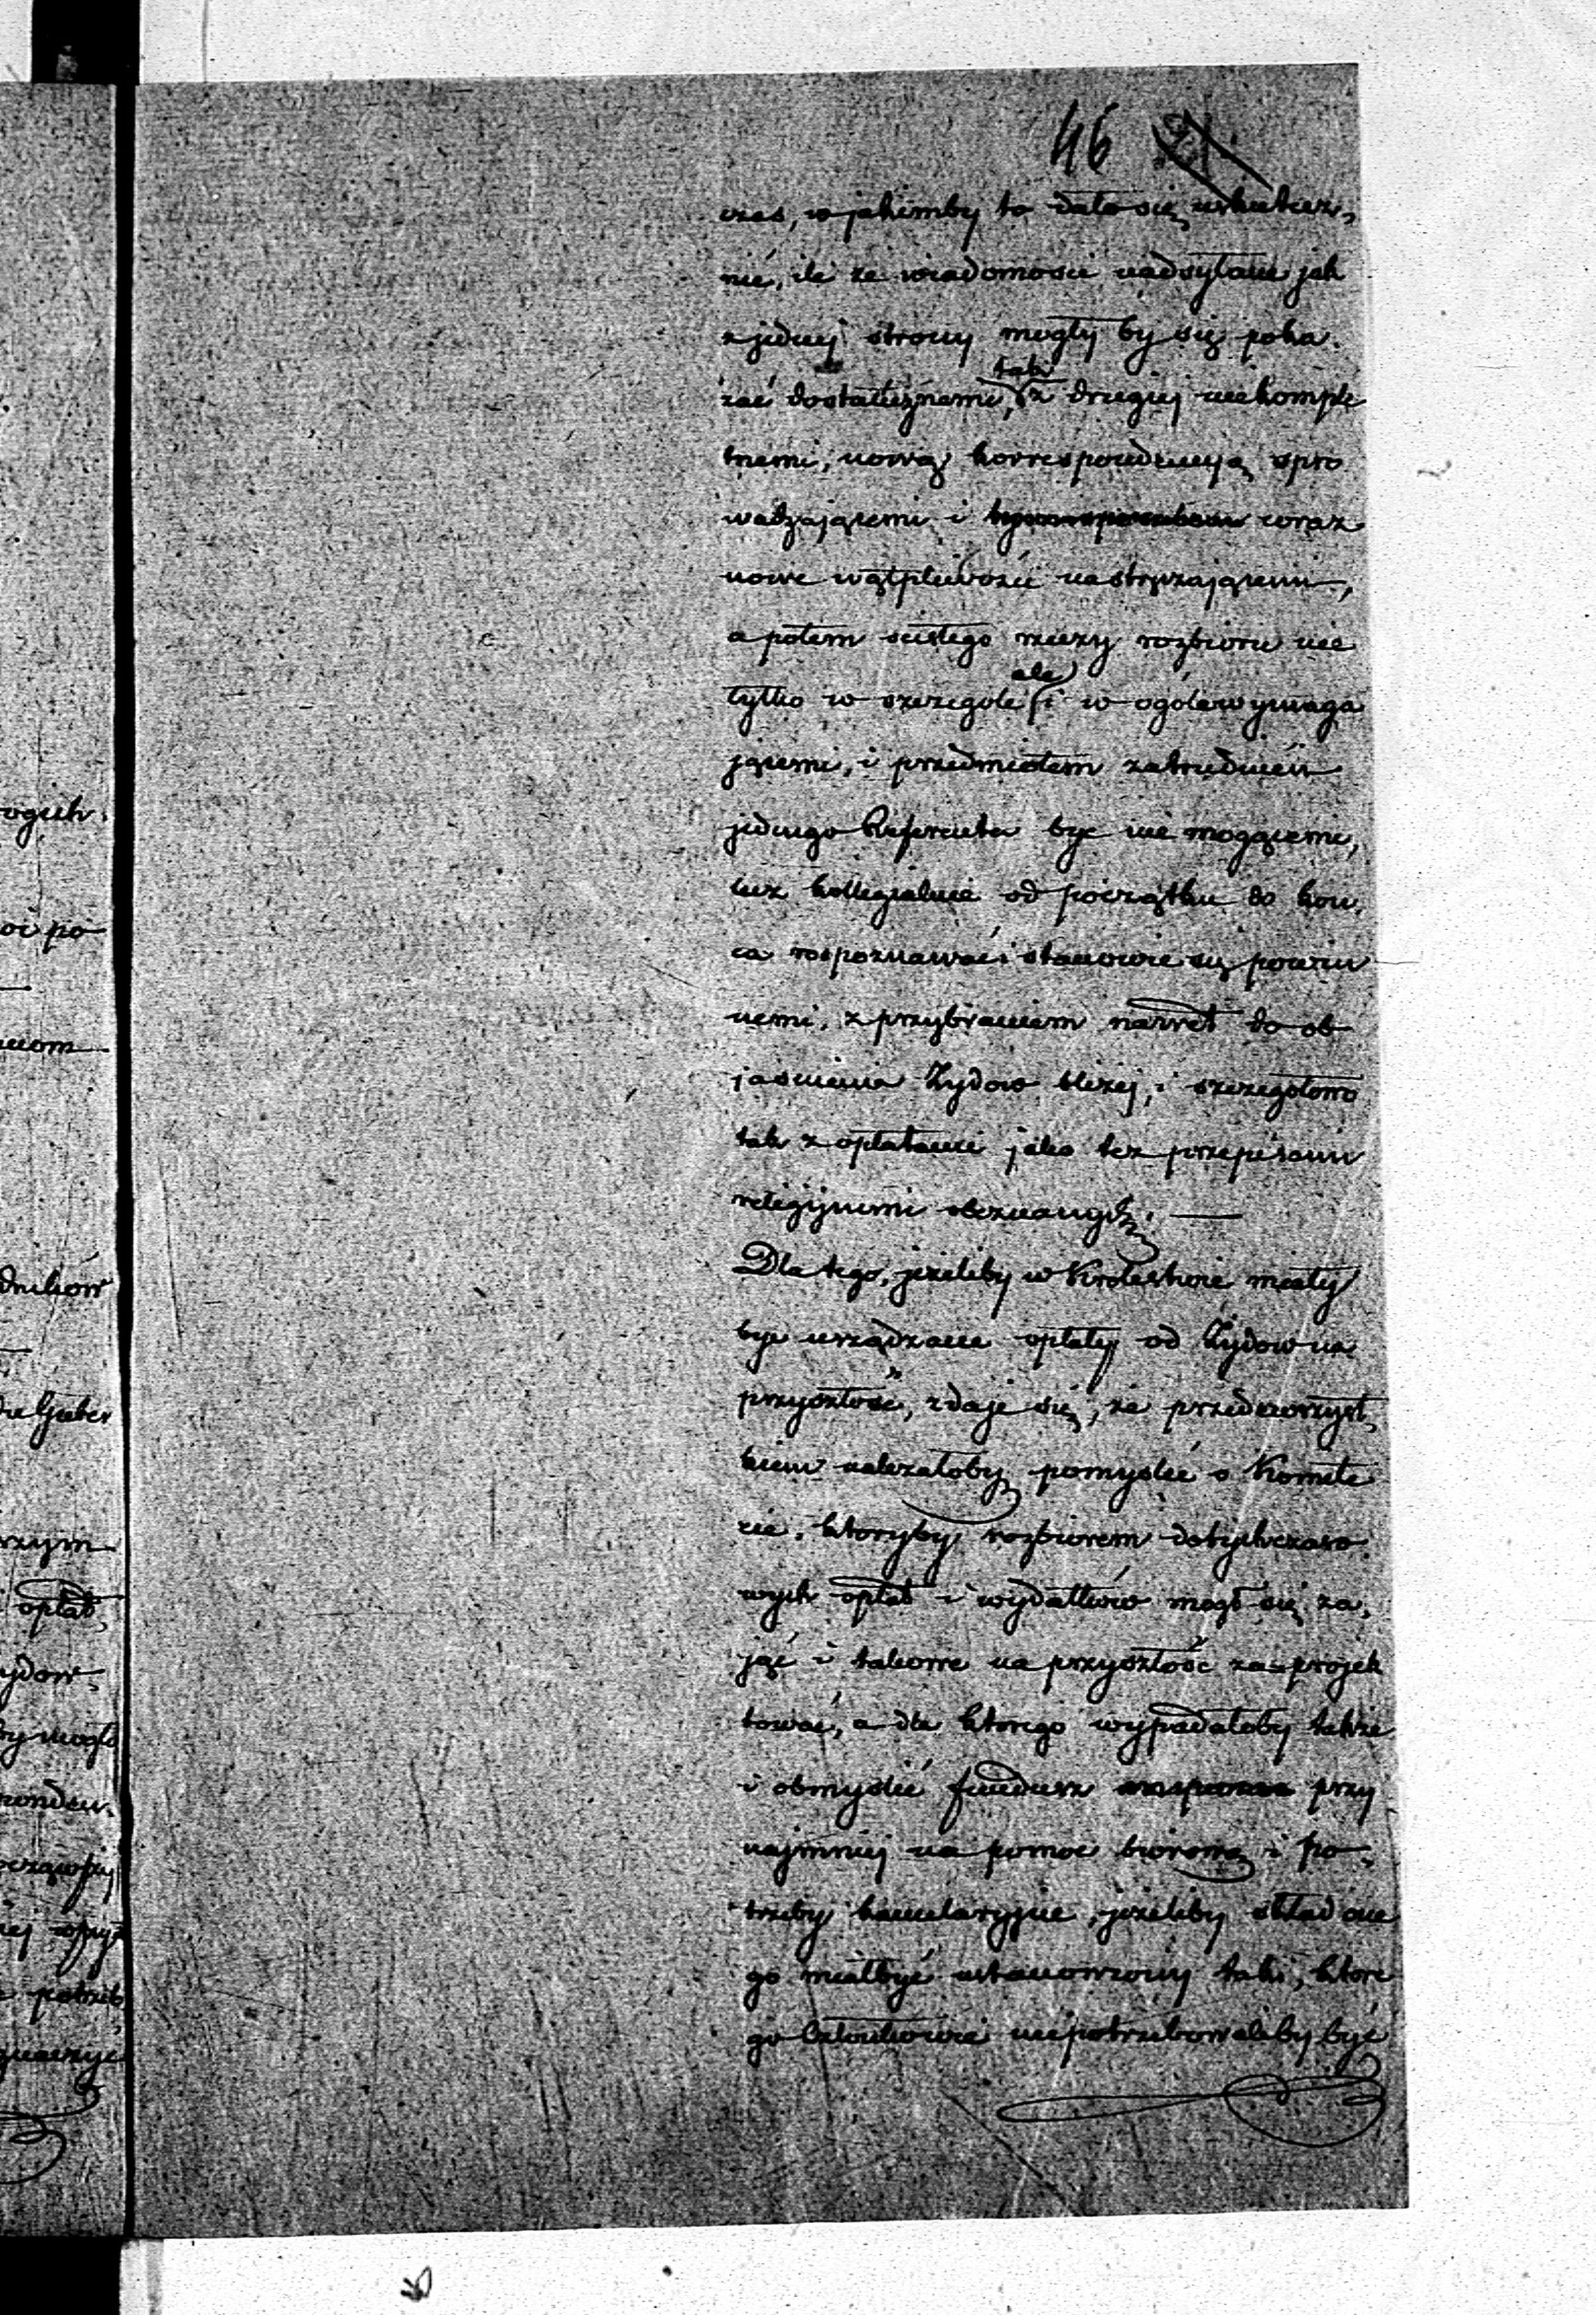 46
czas, w jakimby to dało się uskutecz,
nić, ile że wiadomości nadsyłane jak
z jednej strony mogły by się poka.
zać dostatecznemi, tak z drugiej niekomple
tnemi, nową korrespondencyą spro
wadzającemi i wraz
nowe wątpliwości nastręczającemi,
a potem scisłego rzeczy rozbioru nie
tylko w szczególe ale i w ogóle wymaga
jącemi, i przedmiotem zatrudnień
jednego Referenta być nie mogącemi,
lecz kollegialnie od początku do koń,
ca rospoznawać i stanowić się powin
nemi, z przybraniem nawet do ob
jasnienia Żydow bliżej, i szczegółowo
tak z opłatami jako też przepisami
religijnemi obeznanych. —
Dla tego, jeżeliby w Krolestwie miały
być urządzane opłaty od Żydow na
przyszłość, zdaje się, że przedewszyst,
kiem należałoby pomyśleć o Komite
cie, ktoryby rozbiorem dotychczaso
wych opłat i wydatków mogł się za,
jąć i takowe na przyszłość zaprojek
tować, a dla ktorego wypadałoby także
i obmyśleć fundusz przy
najmniej na pomoc biorową i po,
trzeby kancelaryjne, jeżeliby skład one
go miał być ustanowiony taki, ktore
go Członkowie niepotrzebowaliby być
ogich
oć po
dników
rzym
opłat,
ydow
by mogło
potrzeb